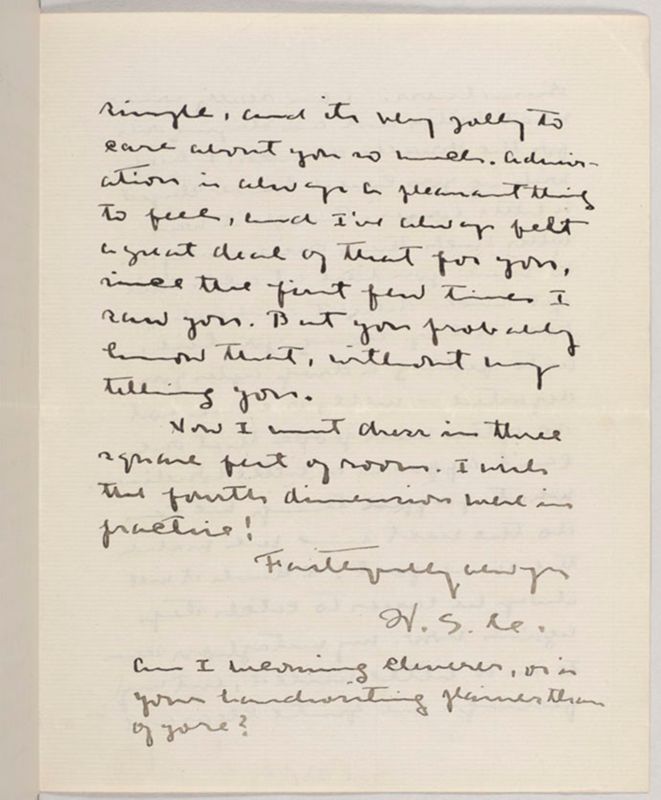 simple, and its very jolly to
care about you so much. Admir-
ation is always a pleasant thing
to feel, and I've always felt
a great deal of that for you,
since the first few times I
saw you. But you probably
know that, without my
telling you.
Now I must dress in three
square feet of room. I wish
the fourth dimension were in
practise!
Faithfully always
H. S.
Am I becoming cleverer, or is
your handwriting plainer than
of yore?